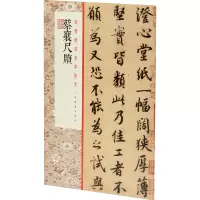 蔡襄尺牘
澄心堂紙一幅闊狹厚薄
堅實皆類此乃佳工者不
願為又恐不能為之試與